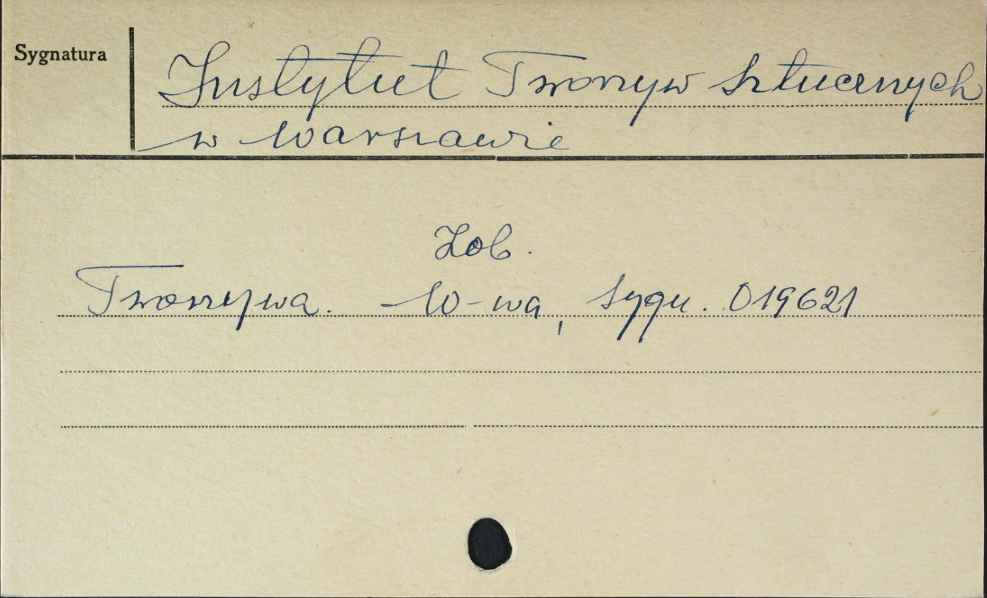 Sygnatura
Instytut Tworzyw Sztucznych
w Warszawie
Zob.
Tworzywa. W-wa, Sygn. 019621